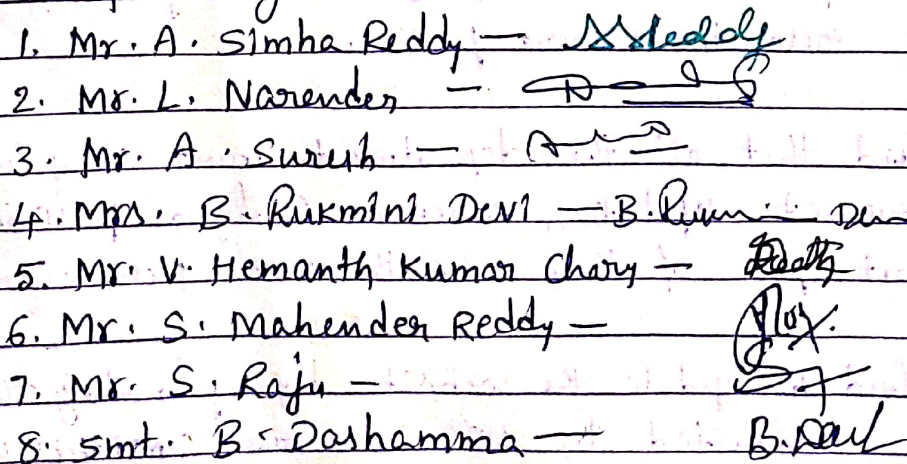 1. Mr. A. Simha Reddy — ASReddy
2. Mr. L. Narender —
3. Mr. A. Suresh. —
4. Mrs. B. Rukmini Devi — B. Rukmini Dev
5. Mr. V. Hemanth Kumar Chary —
6. Mr. S. Mahender Reddy —
7. Mr. S. Raju —
8. Smt. B. Dashamma — B.